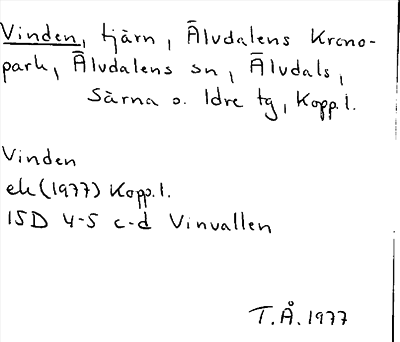 Vinden, tjärn, Älvdalens Krono-
park, Älvdalens sn, Älvdals,
Särna o. Idre tg, Kopp.l.
Vinden
ek (1977) Kopp.l.
15D 4-5 c-d Vinvallen
T.Å. 1977